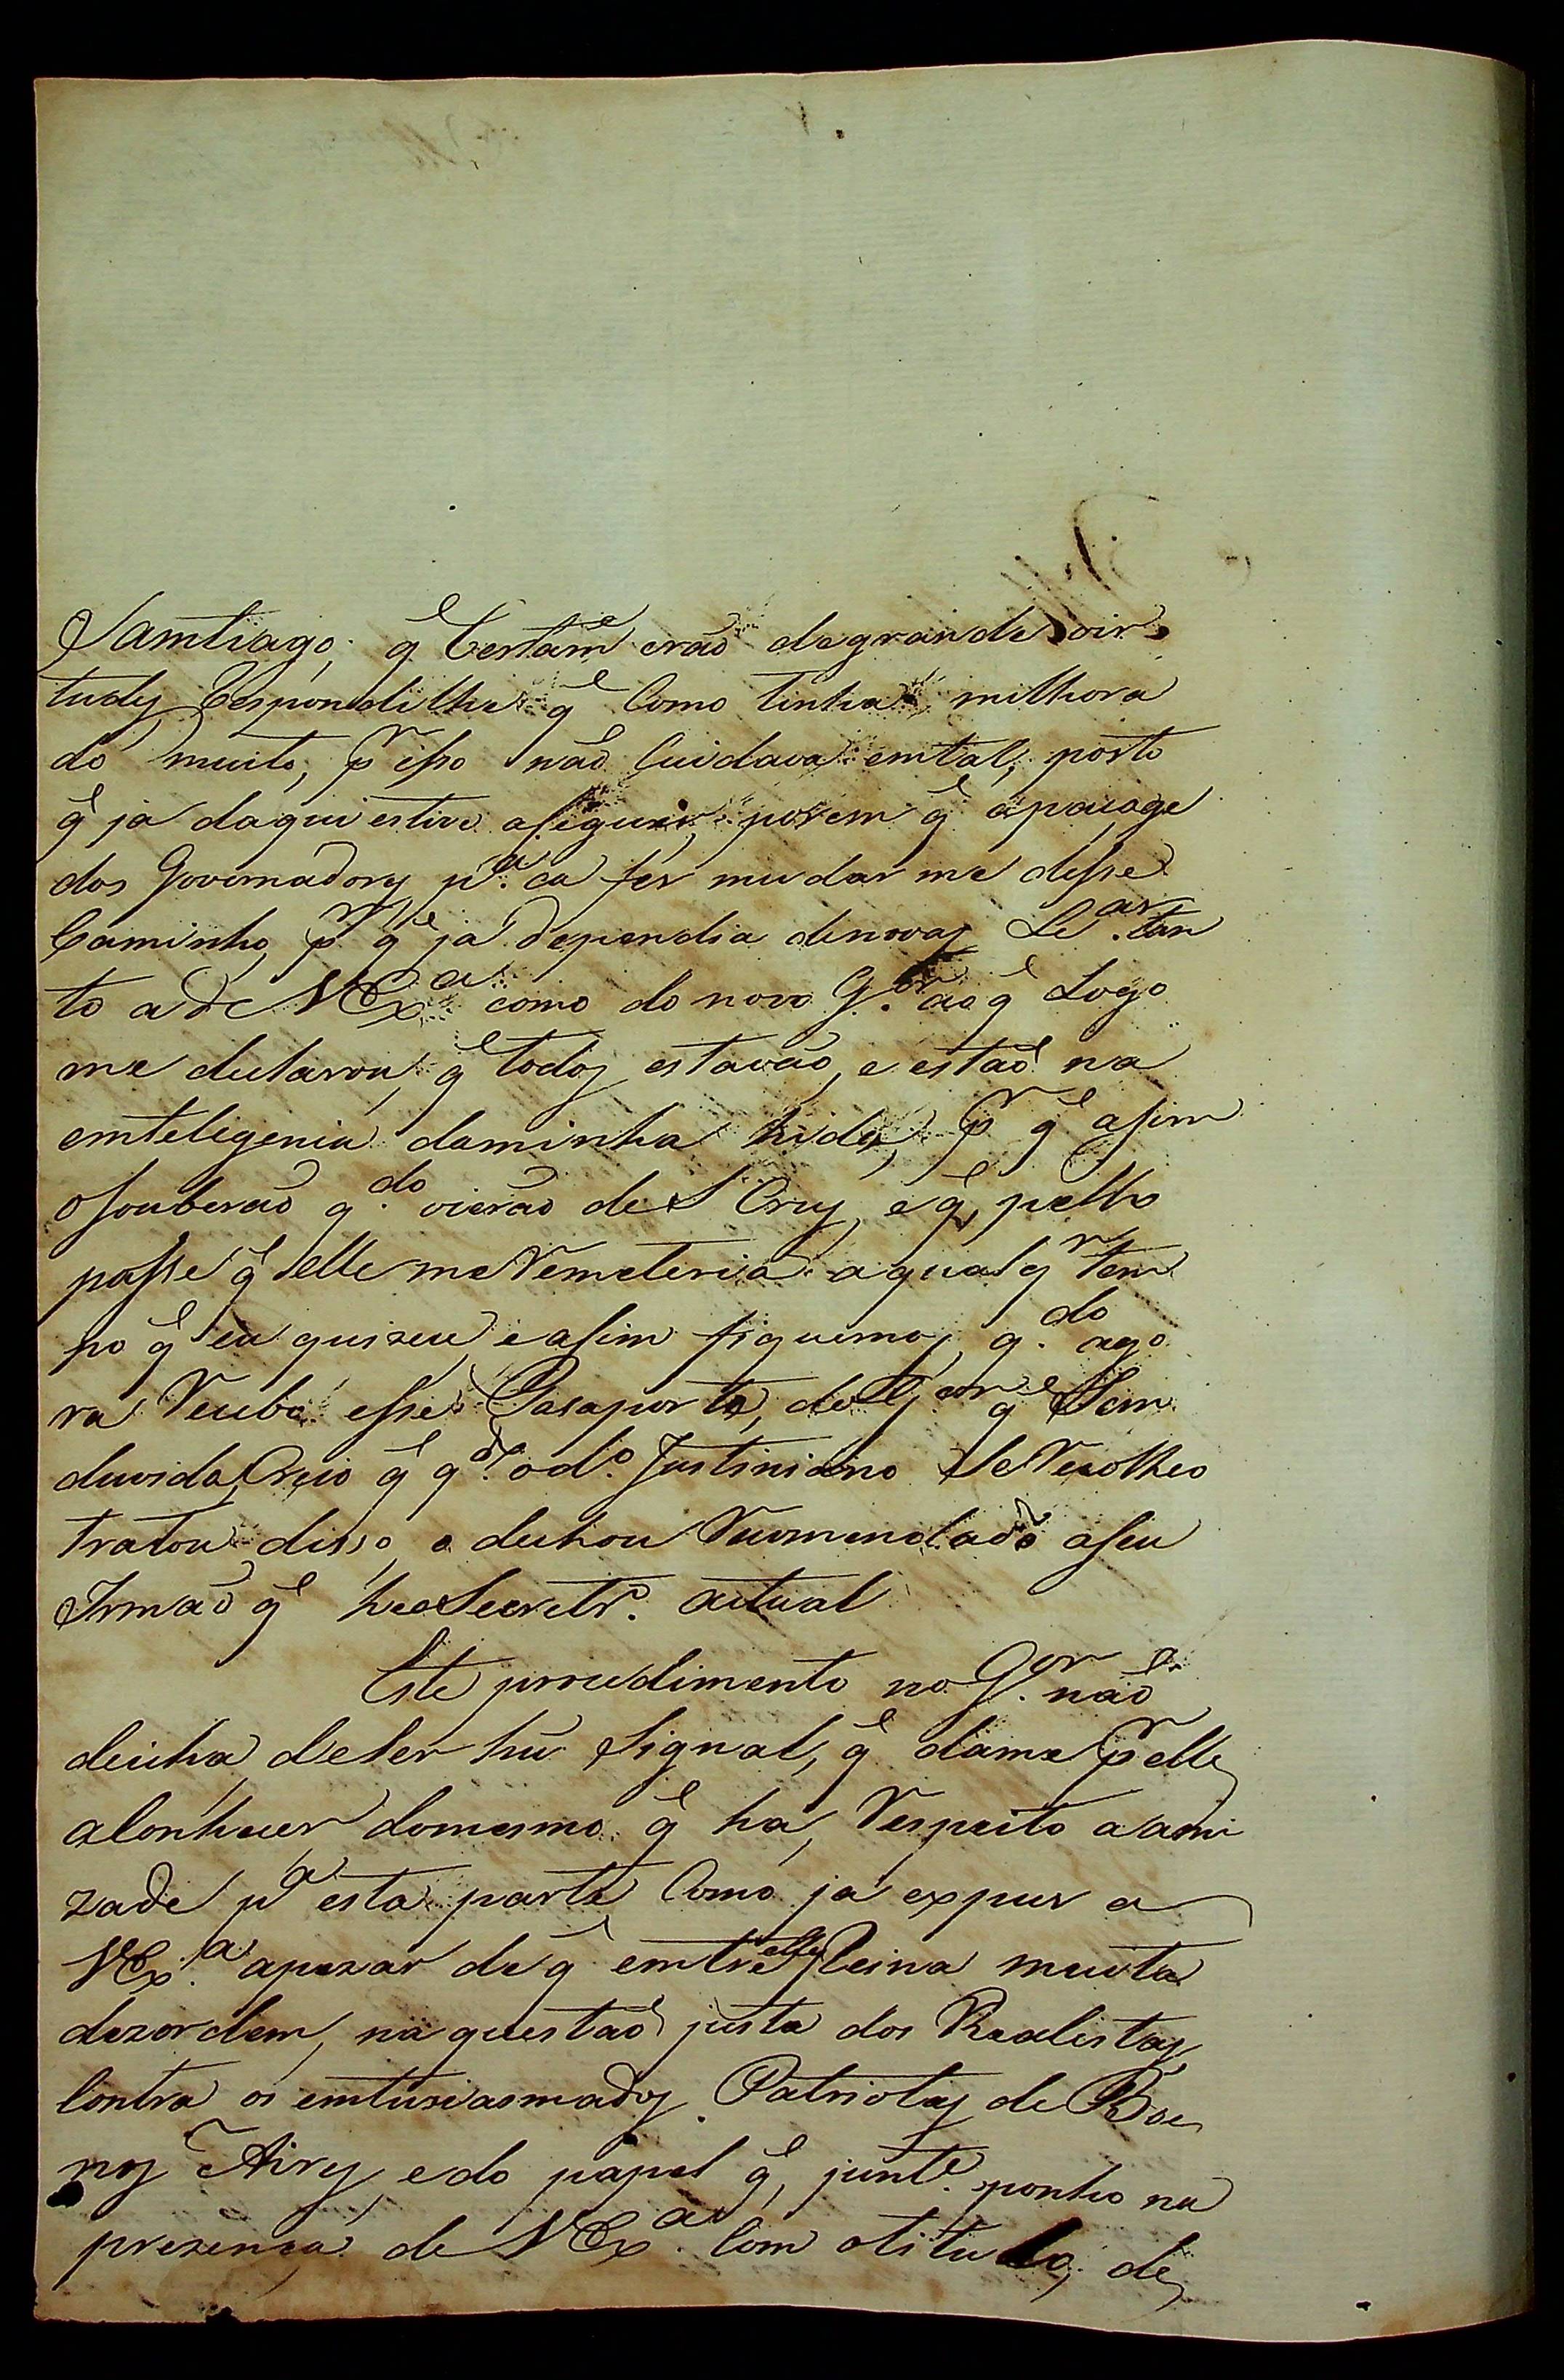 Samtiago; q̃ Certam.e erão de grandes vir
tudes Respondilhe q̃ Como tinha milhora
do muito, p.r isso não Cuidava emtal, posto
q̃ ja daqui estive aseguir, porem q̃ apasage
dos Governadores p.a ca fes mudar me desse
Caminho, p.r q̃ ja dependia denovas Le tan
to a de VEx.a como do novo G.or ao q̃ Logo
me declarou, q̃ todos estavão, e estão na
emteligencia daminha hida, p.r q̃ asim
o souberão q.do vierão de S Cruz, e q̃ pello
passe q̃ elle me Remeteria aqual q.r tem
po q̃ eu quizece, e asim fiquemos, q.do ago
ra Recebo esse Pasaporte, do G.or q̃ Sem
duvida, Creio q̃ q.do o d.o Justiniano Se Recolheo
tratou disso, e deichou Recomendado aseu
Irmão q̃ he o Secretr.o actual
Este procedimento no G.or não
deicha deser hũ Signal, q̃ dame p.r elle
aConhecer domesmo q̃ ha, Respeito a ami
zade p.a esta parte Como ja expus a
VEx.a apezar de q̃ emtre elles Reina muita
dezordem, na questão justa dos Realistas
Contra os emtusiasmados Patriotas de Boe
nos Aires, e do papel q̃, junt.o ponho na
prezença de VEx.a Com otitulo, de